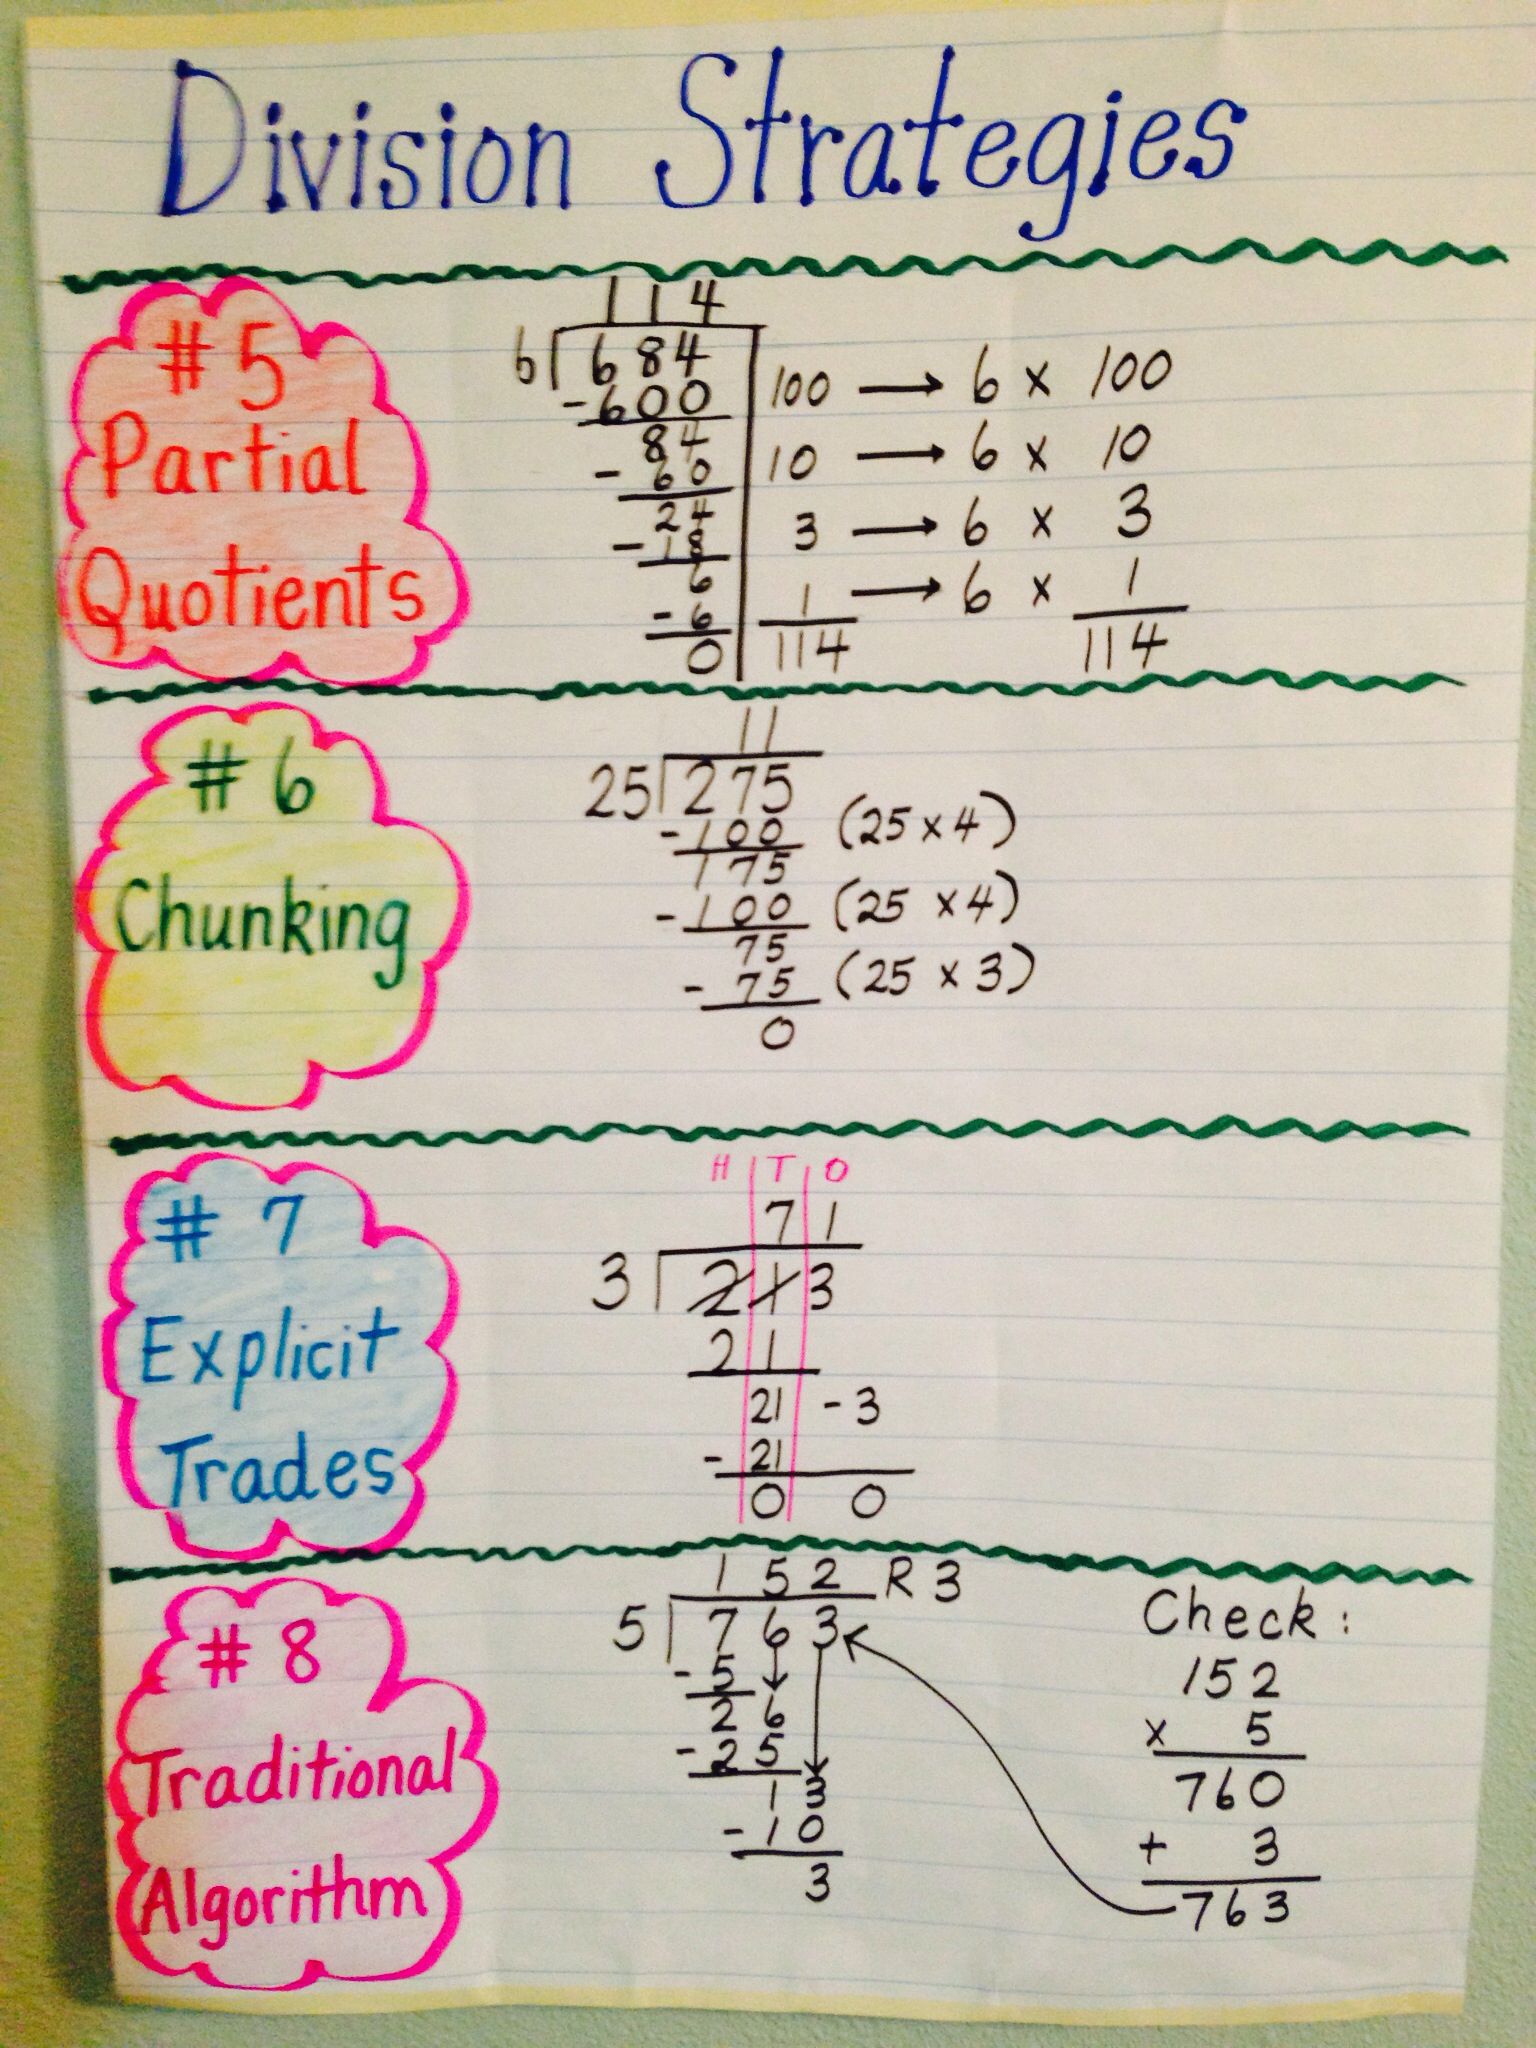 Division Strategies
# 5
Partial
Quotients
114
6 684
-600 100 → 6 x 100
84
- 60 10 → 6 x 10
24
- 18 3 → 6 x 3
6
- 6 1 → 6 x 1
0 114 114
# 6
Chunking
11
25 275
-100 (25 x 4)
175
-100 (25 x 4)
75
- 75 (25 x 3)
0
# 7
Explicit
Trades
H T O
7 1
3 213
21
21 - 3
- 21
0 0
# 8
Traditional
Algorithm
152 R 3
5 763
- 5
26
- 25
13
- 10
3
Check:
152
x 5
760
+ 3
763